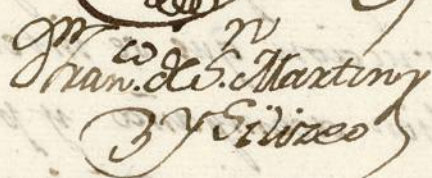 Fran.co de S.n Martin
y Siliceo